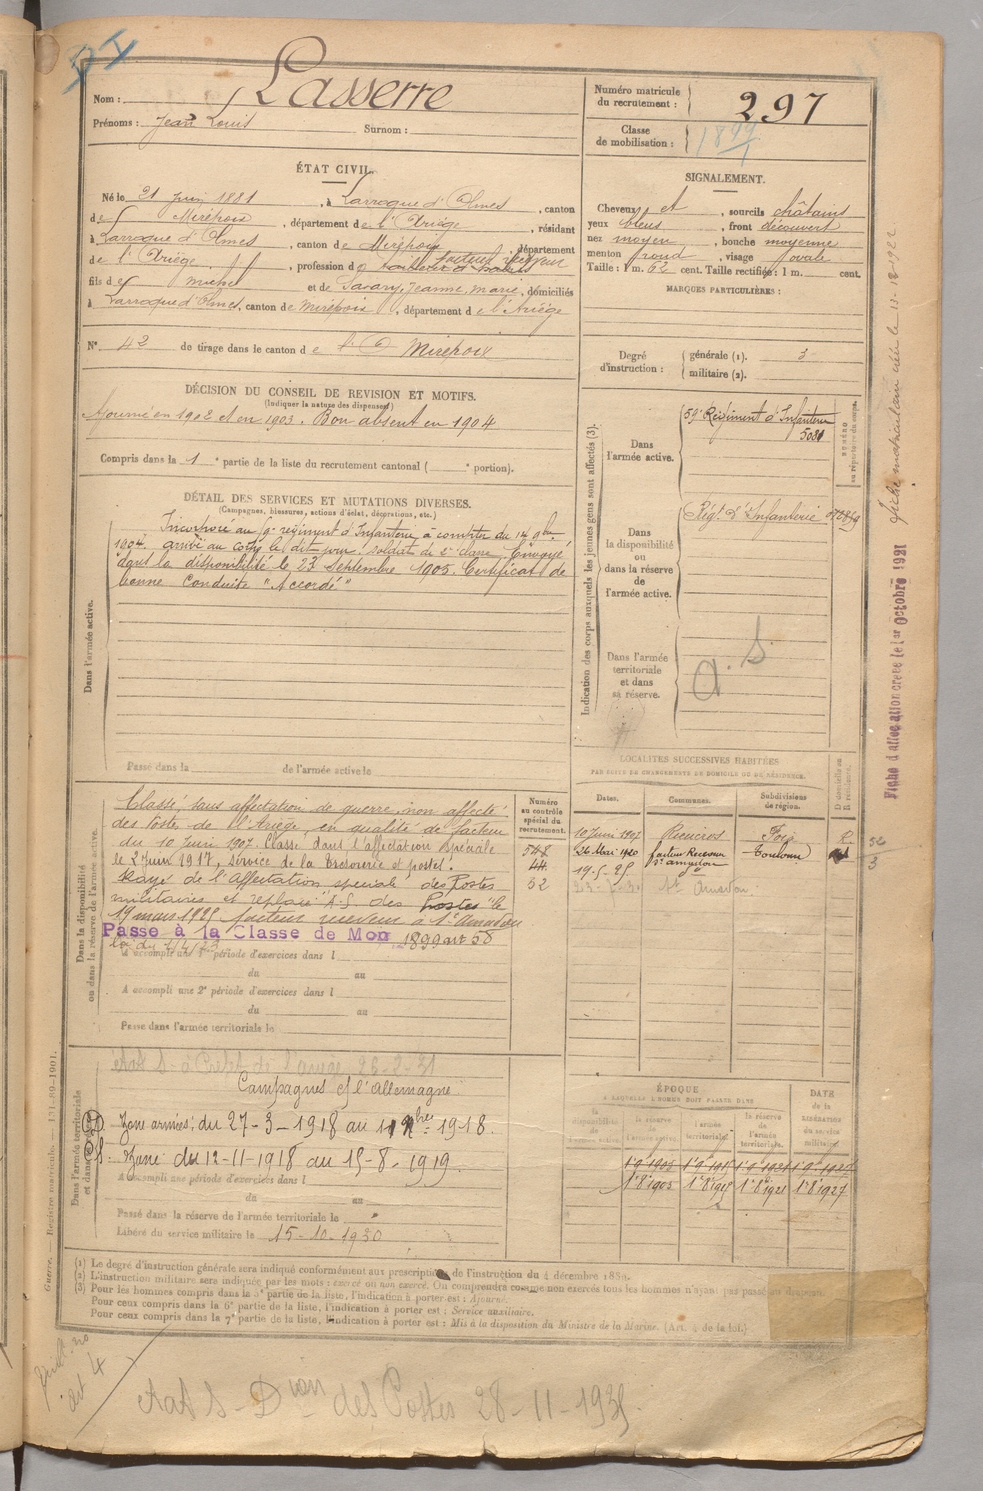 Nom : Lasserre
Prénoms : Jean Louis Surnom :
Numéro matricule
du recrutement : 297
Classe
de mobilisation : 1899
ÉTAT CIVIL.
Né le 21 Juin 1881, à Larroque d'Olmes, canton
de Mirepoix, département de l'Ariège, résidant
à Larroque d'Olmes, canton de Mirepoix, département
de l'Ariège, profession de facteur receveur
fils de Michel et de Savary, Jeanne, Marie, domiciliés
à Larroque d'Olmes, canton de Mirepoix, département de l'Ariège
N° 42 de tirage dans le canton de Mirepoix
SIGNALEMENT.
Cheveux et, sourcils châtains
yeux bleus, front découvert
nez moyen, bouche moyenne
menton rond, visage ovale
Taille : 1 m. 62 cent. Taille rectifiée : 1 m. cent.
MARQUES PARTICULIÈRES :
Degré
d'instruction : générale (1). 3
militaire (2).
DÉCISION DU CONSEIL DE REVISION ET MOTIFS.
(Indiquer la nature des dispenses)
Ajourné en 1902 et en 1903. Bon absent en 1904
Compris dans la 1e partie de la liste du recrutement cantonal ( e portion).
DÉTAIL DES SERVICES ET MUTATIONS DIVERSES.
(Campagnes, blessures, actions d'éclat, décorations, etc.)
Dans l'armée active.
Incorporé au régiment d'Infanterie à compter du 14 9bre
1904. arrivé au corps le dit jour. soldat de 2e classe. Envoyé
dans la disponibilité le 23 Septembre 1905. Certificat de
bonne conduite "Accordé"
Passé dans la de l'armée active le
Indication des corps auxquels les jeunes gens sont affectés (3).
NUMÉRO
au répertoire du corps.
Dans
l'armée active.
59e Régiment d'Infanterie
5081
Dans
la disponibilité
ou
dans la réserve
de
l'armée active.
Régt d'Infanterie
Dans l'armée
territoriale
et dans
sa réserve.
a. S.
Fiche matriculaire créée le 13-12-1922
Fiche d'allocation créée le 1er Octobre 1921
LOCALITÉS SUCCESSIVES HABITÉES
PAR SUITE DE CHANGEMENTS DE DOMICILE OU DE RÉSIDENCE.
Dates. Communes. Subdivisions
de région. D domicile ou
R résidence.
10 Juin 1907 Rieucros Foix R
26 Mai 1920 facteur Receveur
St Amadou Toulouse
19-5-25 do
St Amadou
Dans la disponibilité
ou dans la réserve de l'armée active.
Classé, sans affectation de guerre, non affecté
des Postes de l'Ariège, en qualité de facteur
du 10 Juin 1907. Classé dans l'affectation spéciale
le 2 Juin 1917, service de la trésorerie et postes.
Rayé de l'Affectation spéciale des Postes
militaires et replacé A.S. des Postes le
19 mars 1925 facteur receveur à St Amadou
Passé à la Classe de Mob 1899 art 58
loi du 1/4/23
Numéro
au contrôle
spécial du
recrutement.
518
44
52
52
3
A accompli une 1e période d'exercices dans l
du au
A accompli une 2e période d'exercices dans l
du au
Passé dans l'armée territoriale le
Dans l'armée territoriale
et dans
Aat S - à Préfet de l'Ariège 26-2-31
Campagnes c/ l'Allemagne
Zone armées : du 27-3-1918 au 11 9bre 1918.
Zone du 12-11-1918 au 15-8-1919.
A accompli une période d'exercices dans l
du au
Passé dans la réserve de l'armée territoriale le
Libéré du service militaire le 15-10-1930
ÉPOQUE
À LAQUELLE L'HOMME DOIT PASSER DANS
la
disponibilité la réserve
de
l'armée active. l'armée
territoriale. la réserve
de
l'armée
territoriale. DATE
de la
LIBÉRATION
du service
militaire.
1.9.1905 1.9.1915 1.9.1921 1.9.1927
1.8.1905 1.8.1915 1.8.1921 1.8.1927
(1) Le degré d'instruction générale sera indiqué conformément aux prescriptions de l'instruction du 4 décembre 1889.
(2) L'instruction militaire sera indiquée par les mots : exercé ou non exercé. On comprendra comme non exercés tous les hommes n'ayant pas passé au drapeau.
(3) Pour les hommes compris dans la 5e partie de la liste, l'indication à porter est : Ajourné.
Pour ceux compris dans la 6e partie de la liste, l'indication à porter est : Service auxiliaire.
Pour ceux compris dans la 7e partie de la liste, l'indication à porter est : Mis à la disposition du Ministre de la Marine. (Art. 4 de la loi.)
Guerre. — Registre matricule. — 131-89-1901.
art 4
Aat S - Dion des Postes 28-11-1935